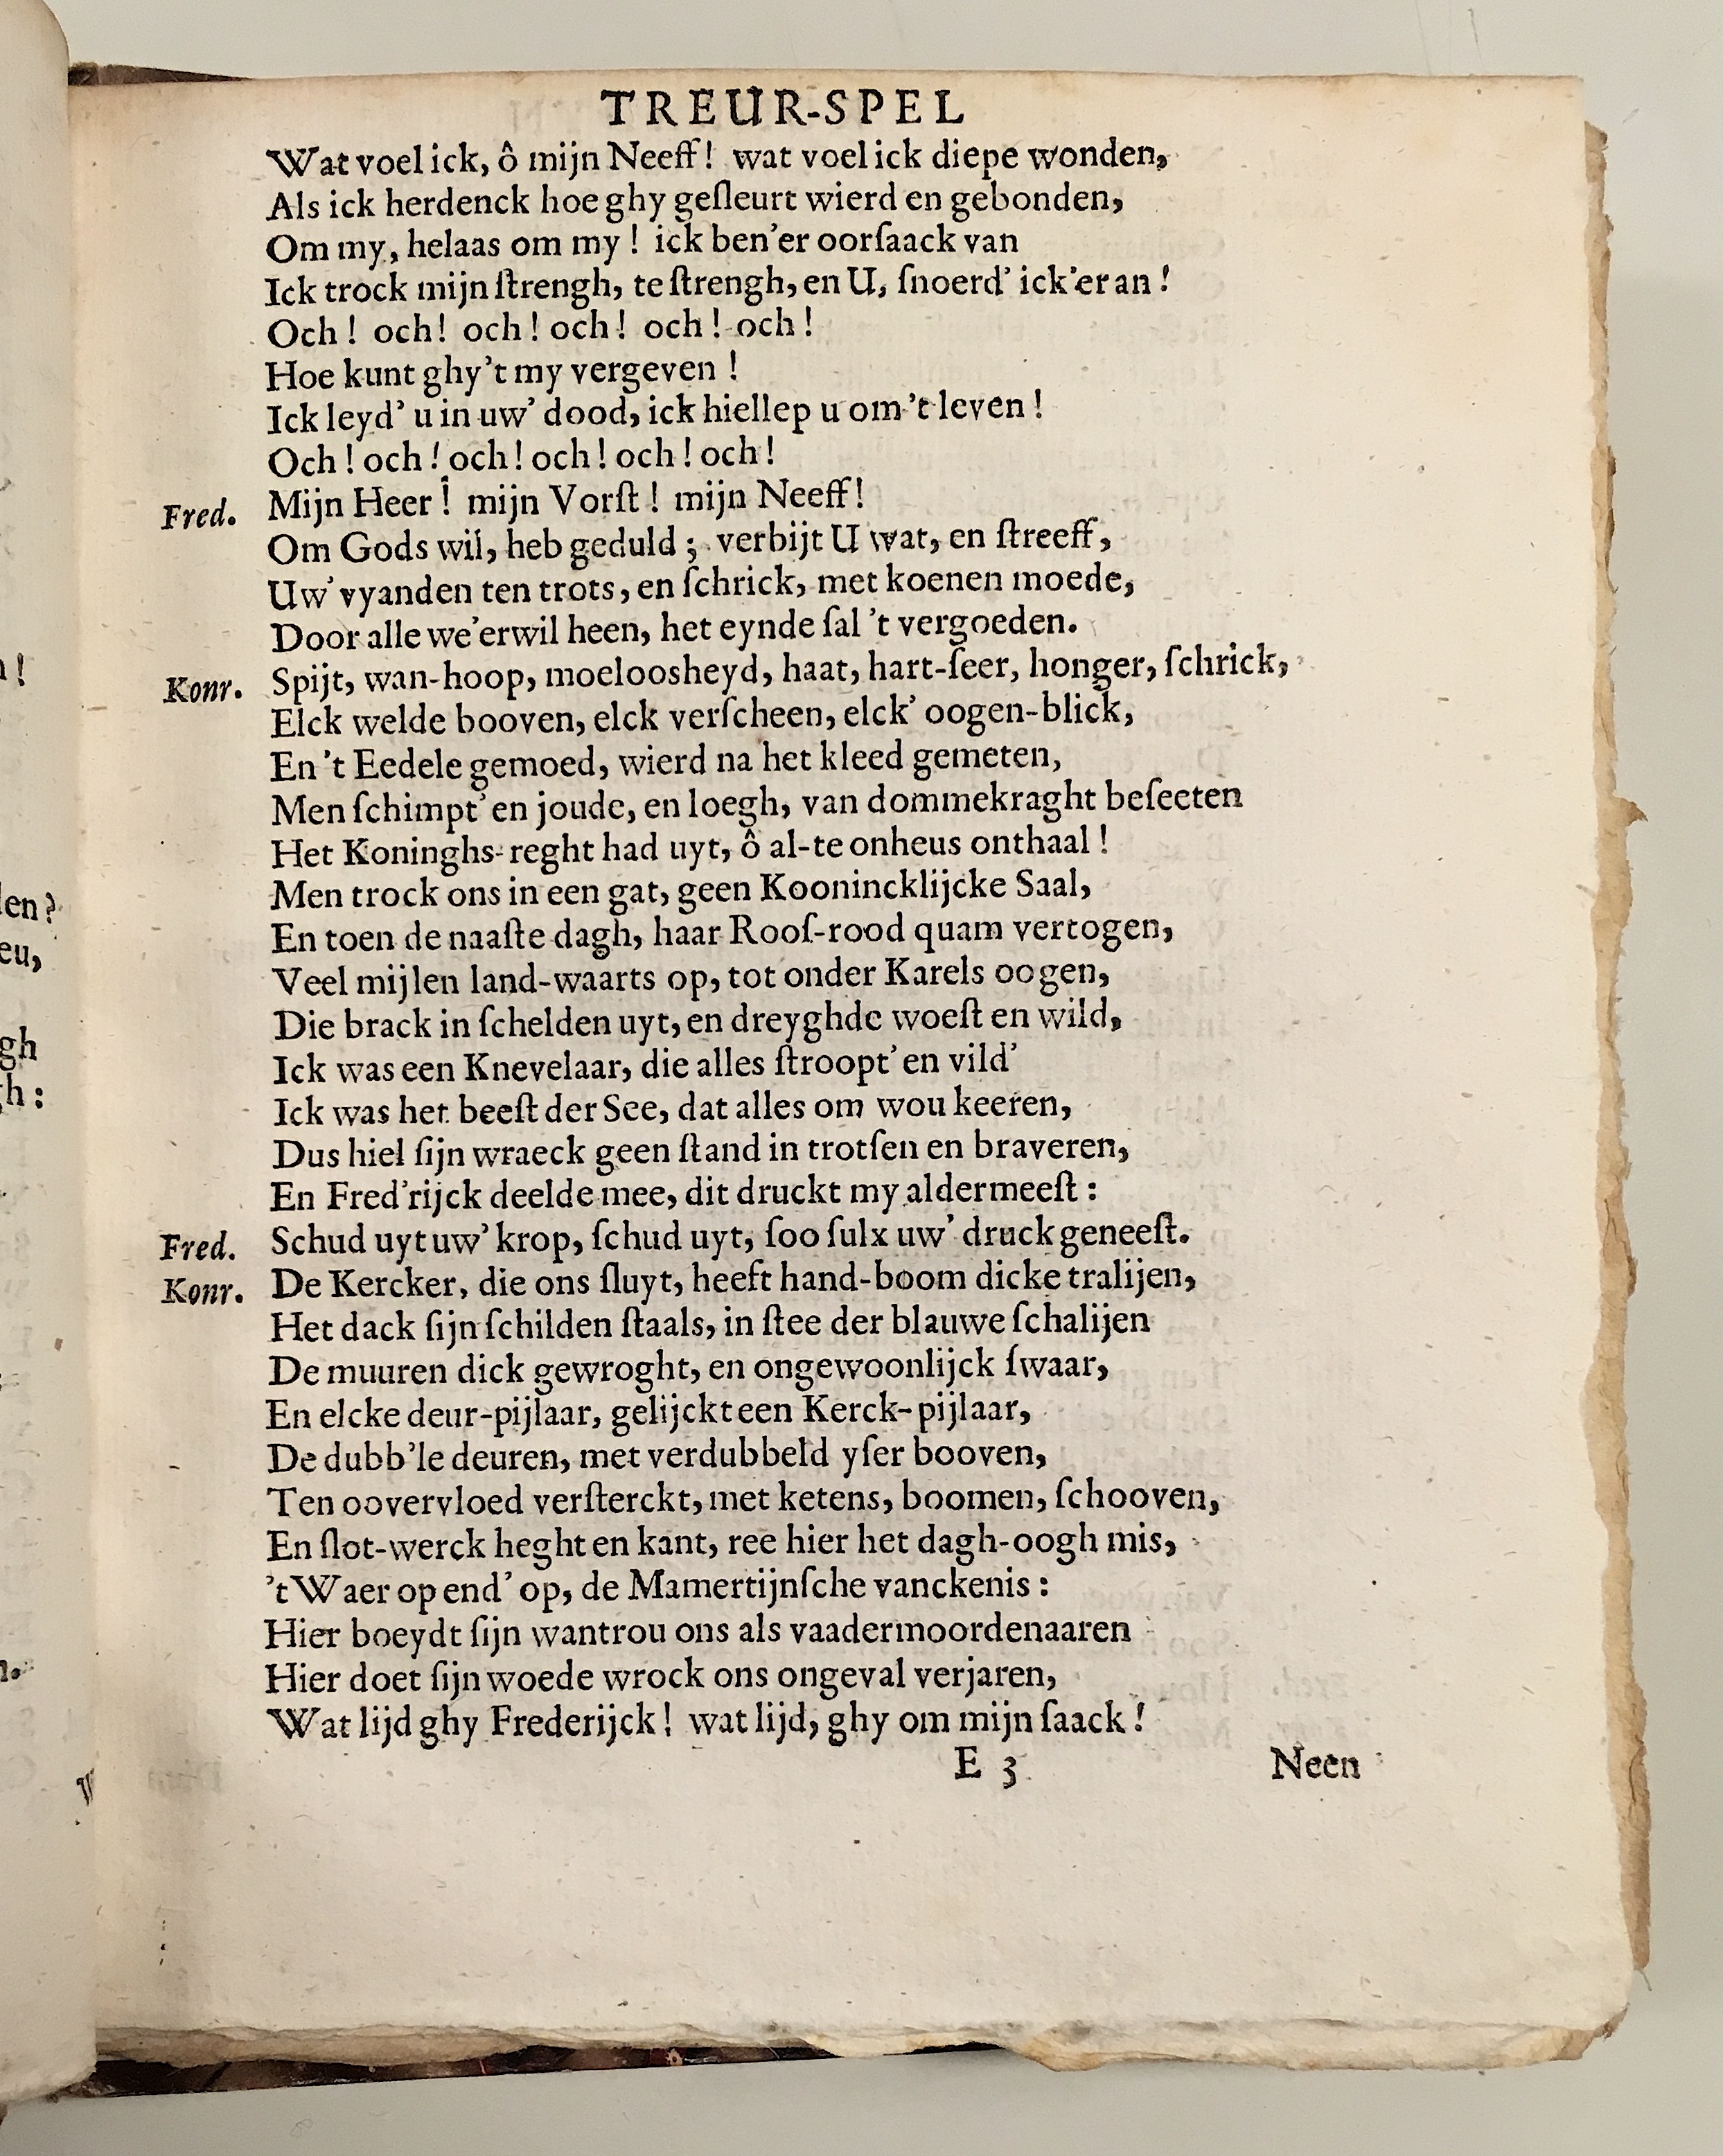 TREUR-SPEL
Wat voel ick, ô mijn Neeff! wat voel ick diepe wonden,
Als ick herdenck hoe ghy geſleurt wierd en gebonden,
Om my, helaas om my! ick ben'er oorſaack van
Ick trock mijn ſtrengh, te ſtrengh, en U, ſnoerd' ick'er an!
Och! och! och! och! och! och!
Hoe kunt ghy't my vergeven!
Ick leyd' u in uw' dood, ick hiellep u om't leven!
Och! och! och! och! och! och!
Fred. Mijn Heer! mijn Vorſt! mijn Neeff!
Om Gods wil, heb geduld; verbijt U wat, en ſtreeff,
Uw' vyanden ten trots, en ſchrick, met koenen moede,
Door alle we'erwil heen, het eynde ſal 't vergoeden.
Konr. Spijt, wan-hoop, moeloosheyd, haat, hart-ſeer, honger, ſchrick,
Elck welde booven, elck verſcheen, elck' oogen-blick,
En 't Eedele gemoed, wierd na het kleed gemeten,
Men ſchimpt' en joude, en loegh, van dommekraght beſeeten
Het Koninghs-reght had uyt, ô al-te onheus onthaal!
Men trock ons in een gat, geen Koonincklijcke Saal,
En toen de naaſte dagh, haar Rooſ-rood quam vertogen,
Veel mijlen land-waarts op, tot onder Karels oogen,
Die brack in ſchelden uyt, en dreyghde woeſt en wild,
Ick was een Knevelaar, die alles ſtroopt' en vild'
Ick was het beeſt der See, dat alles om wou keeren,
Dus hiel ſijn wraeck geen ſtand in trotſen en braveren,
En Fred'rijck deelde mee, dit druckt my aldermeeſt:
Fred. Schud uyt uw' krop, ſchud uyt, ſoo ſulx uw' druck geneeſt.
Konr. De Kercker, die ons ſluyt, heeft hand-boom dicke tralijen,
Het dack ſijn ſchilden ſtaals, in ſtee der blauwe ſchalijen
De muuren dick gewroght, en ongewoonlijck ſwaar,
En elcke deur-pijlaar, gelijckt een Kerck-pijlaar,
De dubb'le deuren, met verdubbeld yſer booven,
Ten oovervloed verſterckt, met ketens, boomen, ſchooven,
En ſlot-werck heght en kant, ree hier het dagh-oogh mis,
't Waer op end' op, de Mamertijnſche vanckenis:
Hier boeydt ſijn wantrou ons als vaadermoordenaaren
Hier doet ſijn woede wrock ons ongeval verjaren,
Wat lijd ghy Frederijck! wat lijd, ghy om mijn ſaack!
E 3 Neen